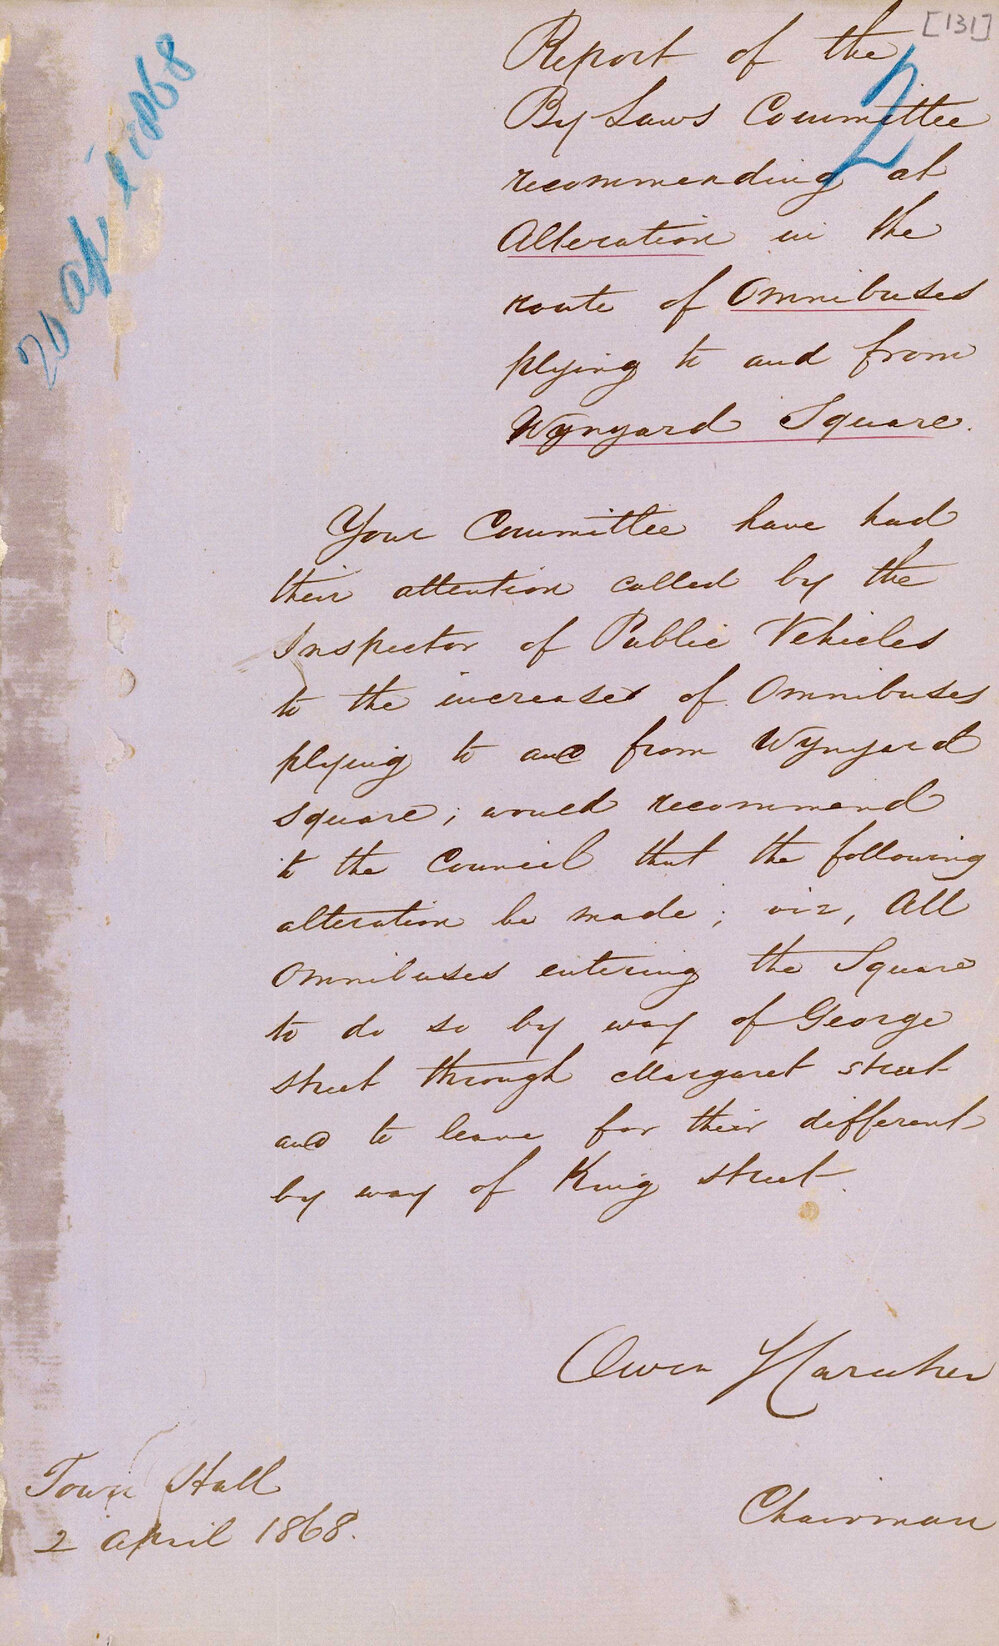 [131]
2
20 April 1868
Report of the
By Laws Committee
recommending at
Alteration in the
route of Omnibuses
plying to and from
Wynyard Square.
Your Committee have had
their attention called by the
Inspector of Public Vehicles
to the increases of Omnibuses
plying to and from Wynyard
square; would recommend
to the Council that the following
alteration be made; viz, All
Omnibuses entering the Square
to do so by way of George
street through Margaret street
and to leave for their different
by way of King street.
Owen
Chairman
Town Hall
2 April 1868.